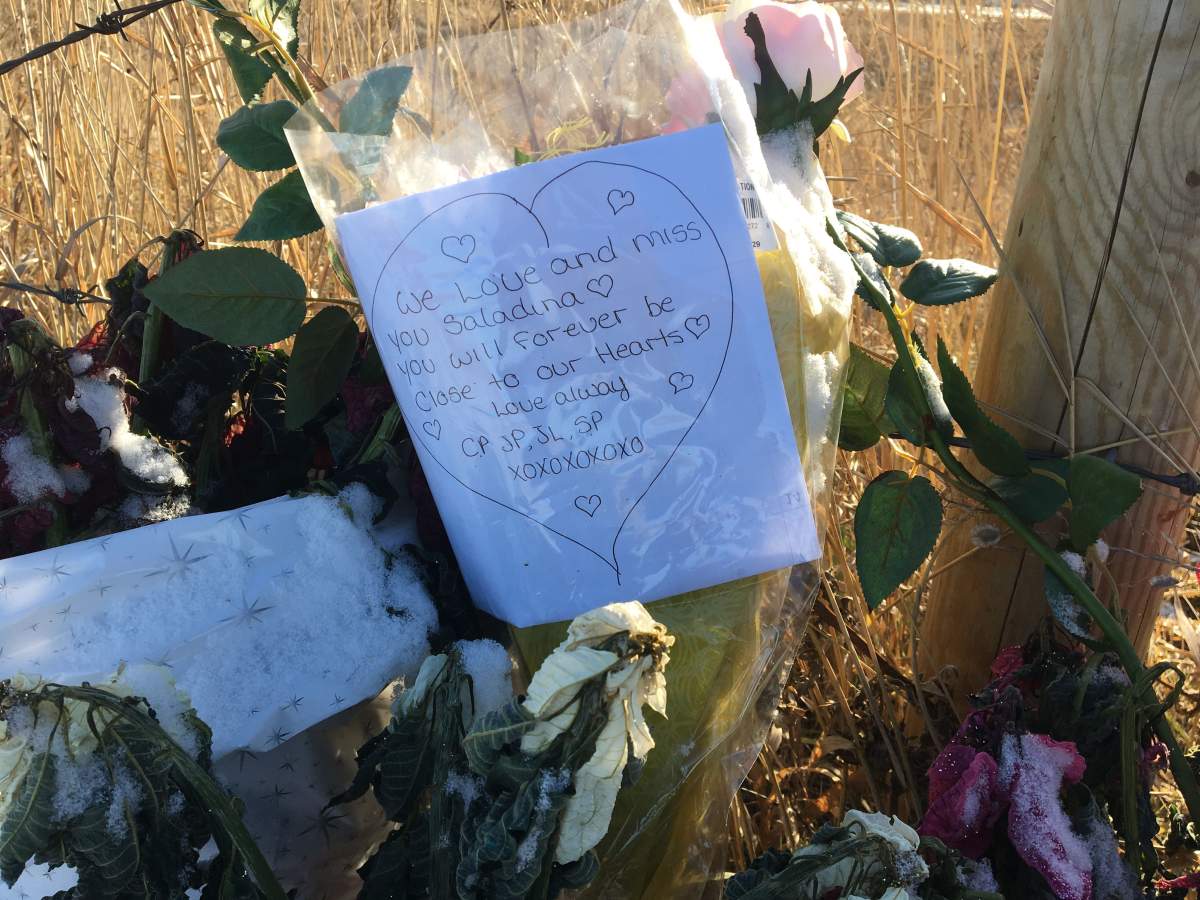 we Love and miss
you Saladina
you will forever be
close to our Hearts
Love alway
CP, JP, JL, SP
XOXOXOXOXO
TION
272 8
29